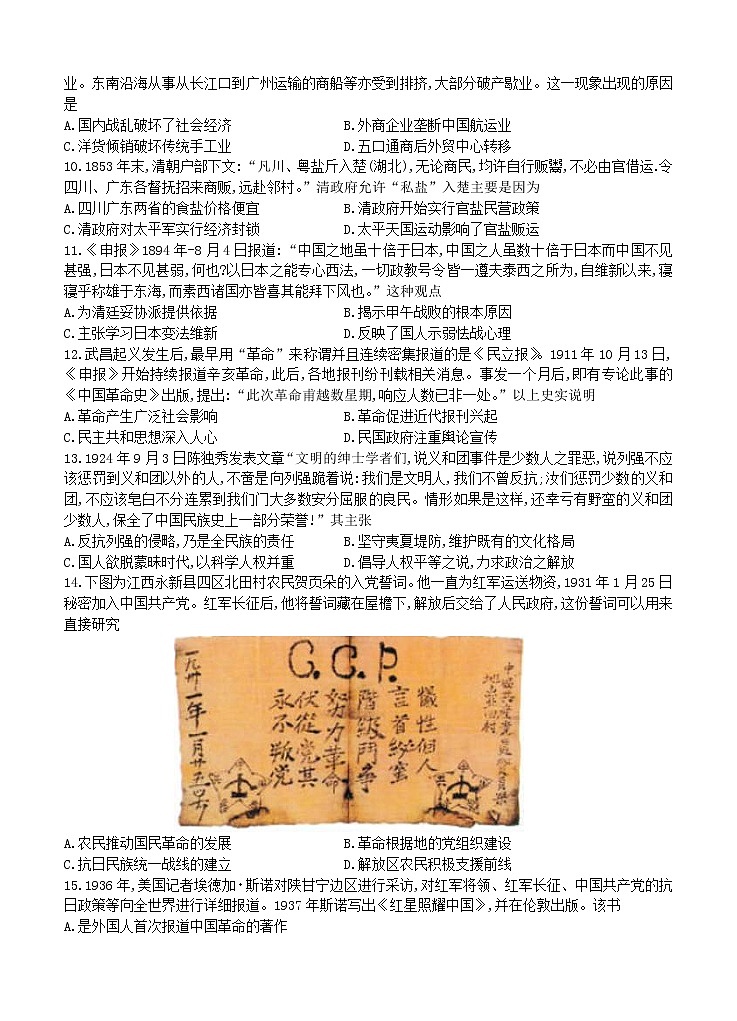 业。东南沿海从事从长江口到广州运输的商船等亦受到排挤,大部分破产歇业。这一现象出现的原因
是
A.国内战乱破坏了社会经济 B.外商企业垄断中国航运业
C.洋货倾销破坏传统手工业 D.五口通商后外贸中心转移
10.1853年末,清朝户部下文:“凡川、粤盐斤入楚(湖北),无论商民,均许自行贩鬻,不必由官借运.令
四川、广东各督抚招来商贩,远赴邻村。”清政府允许“私盐”入楚主要是因为
A.四川广东两省的食盐价格便宜 B.清政府开始实行官盐民营政策
C.清政府对太平军实行经济封锁 D.太平天国运动影响了官盐贩运
11.《申报》1894年-8月4日报道:“中国之地虽十倍于日本,中国之人虽数十倍于日本而中国不见
甚强,日本不见甚弱,何也?以日本之能专心西法,一切政教号令皆一遵夫泰西之所为,自维新以来,寝
寝乎称雄于东海,而素西诸国亦皆喜其能拜下风也。”这种观点
A.为清廷妥协派提供依据 B.揭示甲午战败的根本原因
C.主张学习日本变法维新 D.反映了国人示弱怯战心理
12.武昌起义发生后,最早用“革命”来称谓并且连续密集报道的是《民立报》。1911年10月13日,
《申报》开始持续报道辛亥革命,此后,各地报刊纷刊载相关消息。事发一个月后,即有专论此事的
《中国革命史》出版,提出:“此次革命甫越数星期,响应人数已非一处。”以上史实说明
A.革命产生广泛社会影响 B.革命促进近代报刊兴起
C.民主共和思想深入人心 D.民国政府注重舆论宣传
13.1924年9月3日陈独秀发表文章“文明的绅士学者们,说义和团事件是少数人之罪恶,说列强不应
该惩罚到义和团以外的人,不啻是向列强跪着说:我们是文明人,我们不曾反抗;汝们惩罚少数的义和
团,不应该皂白不分连累到我们门大多数安分屈服的良民。情形如果是这样,还幸亏有野蛮的义和团
少数人,保全了中国民族史上一部分荣誉!”其主张
A.反抗列强的侵略,乃是全民族的责任 B.坚守夷夏堤防,维护既有的文化格局
C.国人欲脱蒙昧时代,以科学人权并重 D.倡导人权平等之说,力求政治之解放
14.下图为江西永新县四区北田村农民贺页朵的入党誓词。他一直为红军运送物资,1931年1月25日
秘密加入中国共产党。红军长征后,他将誓词藏在屋檐下,解放后交给了人民政府,这份誓词可以用来
直接研究
C.C.P.
牺牲個人
言首秘蜜
階級鬥争
努力革命
伏從党其
永不叛党
一九卅一年一月廿五日
A.农民推动国民革命的发展 B.革命根据地的党组织建设
C.抗日民族统一战线的建立 D.解放区农民积极支援前线
15.1936年,美国记者埃德加·斯诺对陕甘宁边区进行采访,对红军将领、红军长征、中国共产党的抗
日政策等向全世界进行详细报道。1937年斯诺写出《红星照耀中国》,并在伦敦出版。该书
A.是外国人首次报道中国革命的著作